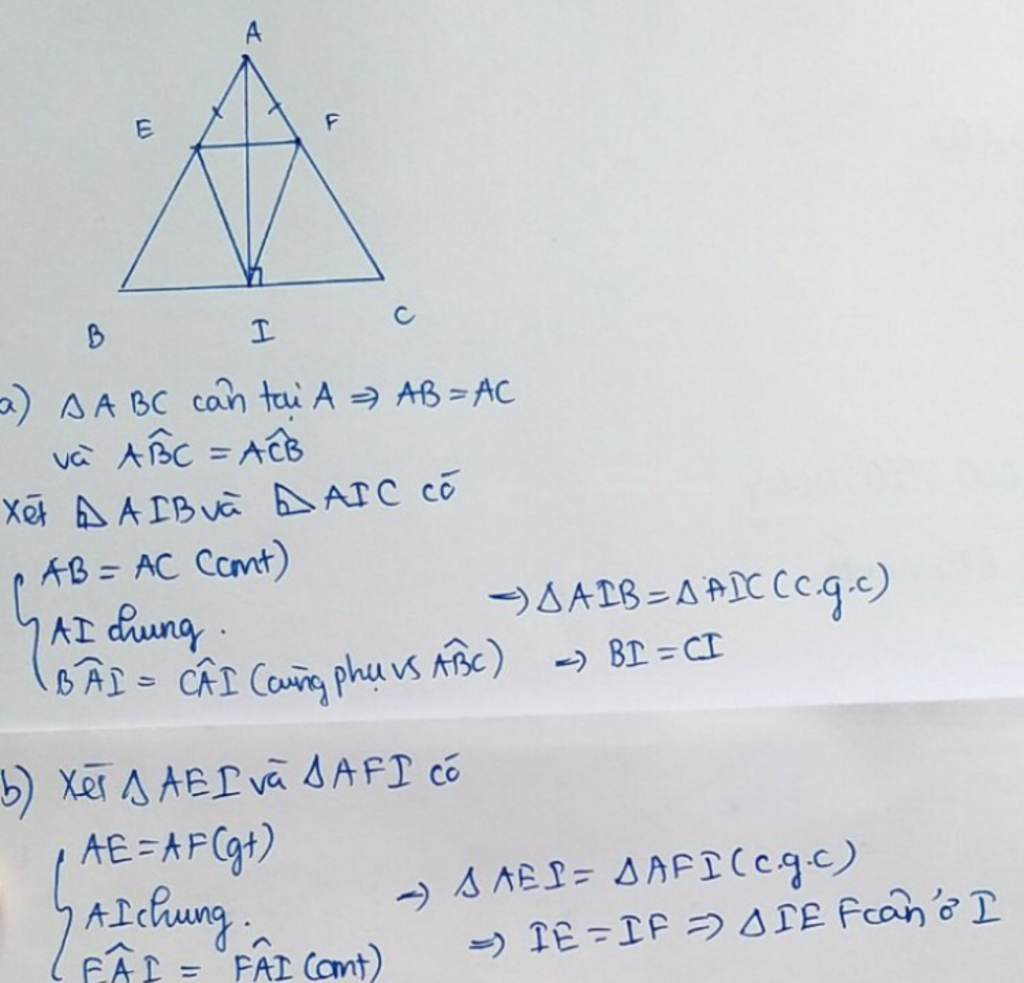 A
E
F
B
I
C
a) ΔABC cân tại A => AB = AC
và AB̂C = AĈB
Xét ⊿AIB và ⊿AIC có
AB = AC (cmt)
AI chung.
BÂI = CÂI (cùng phụ vs AB̂C)
=> ΔAIB = ΔAIC (c.g.c)
=> BI = CI
b) Xét ΔAEI và ΔAFI có
AE = AF (gt)
AI chung.
EÂI = FÂI (cmt)
=> ΔAEI = ΔAFI (c.g.c)
=> IE = IF => ΔIEF cân ở I